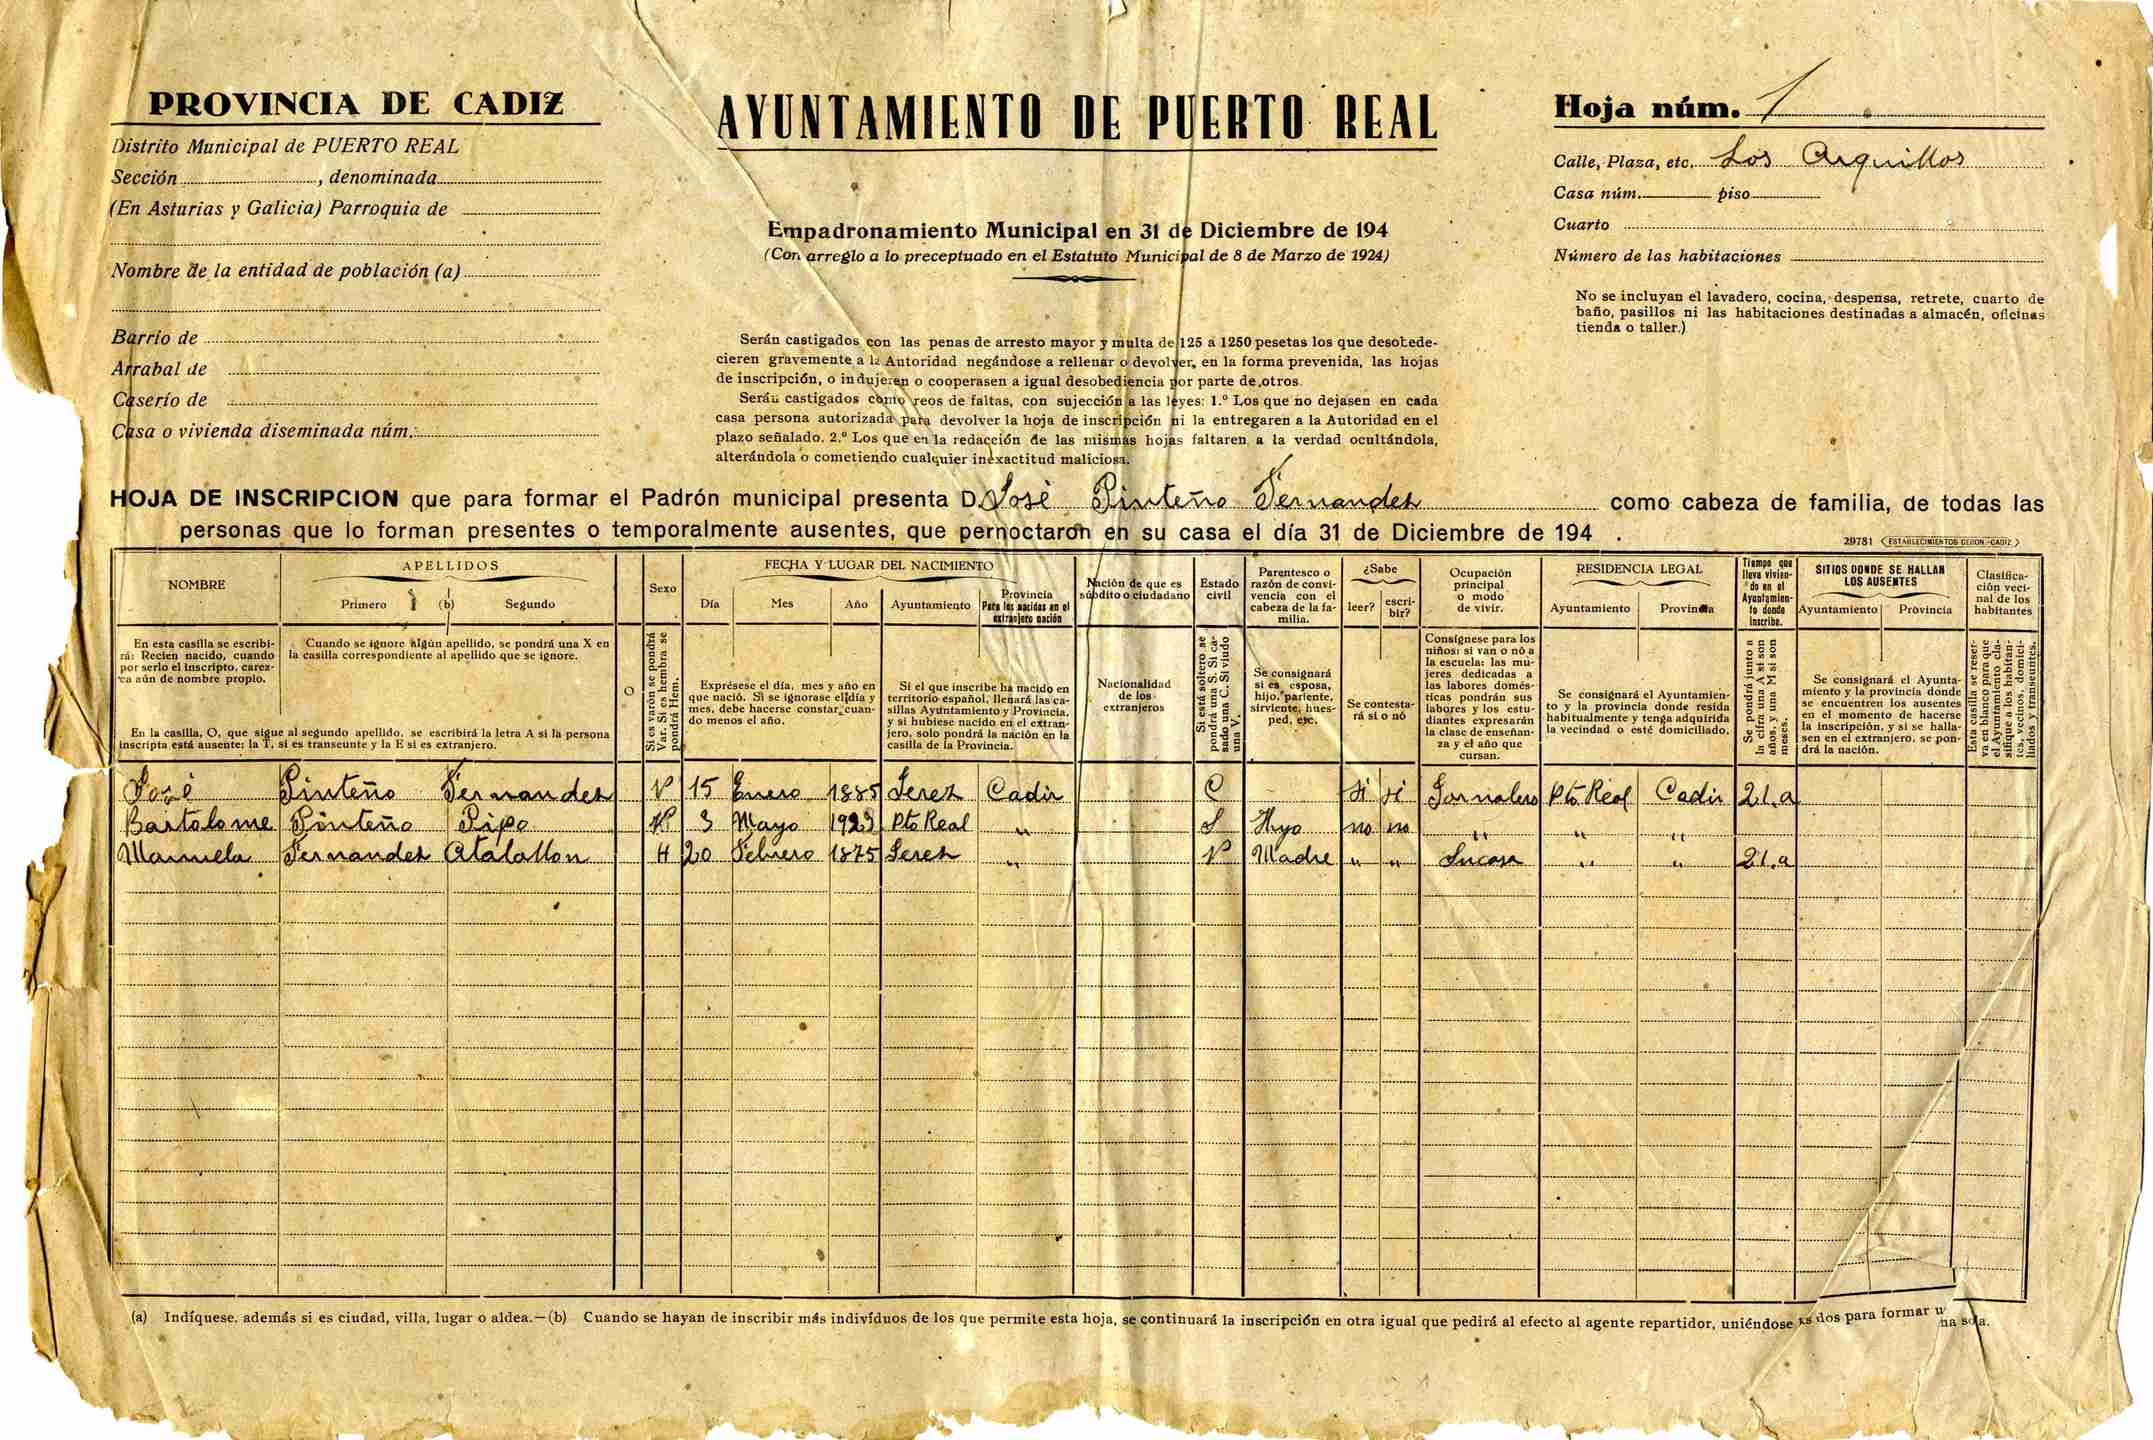 PROVINCIA DE CADIZ
Distrito Municipal de PUERTO REAL
Sección , denominada
(En Asturias y Galicia) Parroquia de
Nombre de la entidad de población (a)
Barrio de
Arrabal de
Caserío de
Casa o vivienda diseminada núm.
AYUNTAMIENTO DE PUERTO REAL
Empadronamiento Municipal en 31 de Diciembre de 194
(Con arreglo a lo preceptuado en el Estatuto Municipal de 8 de Marzo de 1924)
Serán castigados con las penas de arresto mayor y multa de 125 a 1250 pesetas los que desobede-
cieren gravemente a la Autoridad negándose a rellenar o devolver, en la forma prevenida, las hojas
de inscripción, o indujeren o cooperasen a igual desobediencia por parte de otros.
Serán castigados como reos de faltas, con sujección a las leyes: 1.º Los que no dejasen en cada
casa persona autorizada para devolver la hoja de inscripción ni la entregaren a la Autoridad en el
plazo señalado. 2.º Los que en la redacción de las mismas hojas faltaren a la verdad ocultándola,
alterándola o cometiendo cualquier inexactitud maliciosa.
Hoja núm. 1
Calle, Plaza, etc. Los Arquillos
Casa núm. piso
Cuarto
Número de las habitaciones
No se incluyan el lavadero, cocina, despensa, retrete, cuarto de
baño, pasillos ni las habitaciones destinadas a almacén, oficinas
tienda o taller.)
HOJA DE INSCRIPCION que para formar el Padrón municipal presenta D. José Pinteño Fernandez como cabeza de familia, de todas las
personas que lo forman presentes o temporalmente ausentes, que pernoctaron en su casa el día 31 de Diciembre de 194 .
29781 ESTABLECIMIENTOS CERON-CADIZ
NOMBRE
APELLIDOS
Primero (b) Segundo
Sexo
FECHA Y LUGAR DEL NACIMIENTO
Día Mes Año Ayuntamiento
Provincia
Para los nacidos en el
extranjero nación
Nación de que es
súbdito o ciudadano
Estado
civil
Parentesco o
razón de convi-
vencia con el
cabeza de la fa-
milia.
¿Sabe
leer? escri-
bir?
Ocupación
principal
o modo
de vivir.
RESIDENCIA LEGAL
Ayuntamiento Provincia
Tiempo que
lleva vivien-
do en el
Ayuntamien-
to donde
inscribe.
SITIOS DONDE SE HALLAN
LOS AUSENTES
Ayuntamiento Provincia
Clasifica-
ción veci-
nal de los
habitantes
En esta casilla se escribi-
rá: Recien nacido, cuando
por serlo el inscripto, carez-
ca aún de nombre propio.
Cuando se ignore algún apellido, se pondrá una X en
la casilla correspondiente al apellido que se ignore.
En la casilla, O, que sigue al segundo apellido, se escribirá la letra A si la persona
inscripta está ausente: la T, si es transeunte y la E si es extranjero.
O
Si es varón se pondrá
Var. Si es hembra se
pondrá Hem.
Exprésese el día, mes y año en
que nació. Si se ignorase el día y
mes, debe hacerse constar cuan-
do menos el año.
Si el que inscribe ha nacido en
territorio español, llenará las ca-
sillas Ayuntamiento y Provincia,
y si hubiese nacido en el extran-
jero, solo pondrá la nación en la
casilla de la Provincia.
Nacionalidad
de los
extranjeros
Si está soltero se
pondrá una S. Si ca-
sado una C. Si viudo
una V.
Se consignará
si es esposa,
hijo, pariente,
sirviente, hues-
ped, etc.
Se contesta-
rá si o nó
Consígnese para los
niños: si van o nó a
la escuela: las mu-
jeres dedicadas a
las labores domés-
ticas pondrán sus
labores y los estu-
diantes expresarán
la clase de enseñan-
za y el año que
cursan.
Se consignará el Ayuntamien-
to y la provincia donde resida
habitualmente y tenga adquirida
la vecindad o esté domiciliado.
Se pondrá junto a
la cifra una A si son
años, y una M si son
meses.
Se consignará el Ayunta-
miento y la provincia donde
se encuentren los ausentes
en el momento de hacerse
la inscripción, y si se halla-
sen en el extranjero, se pon-
drá la nación.
Esta casilla se reser-
va en blanco para que
el Ayuntamiento cla-
sifique a los habitan-
tes, vecinos, domici-
liados y transeuntes.
José Pinteño Fernandez V 15 Enero 1885 Jerez Cadiz C - si si Jornalero Pto Real Cadiz 21.a
Bartolome Pinteño Pipo V 3 Mayo Pto Real " S Hijo no no " " "
Manuela Fernandez Atalallon H 20 Febrero 1875 Jerez " V Madre " " Su casa " " 21.a
(a) Indíquese. además si es ciudad, villa, lugar o aldea.—(b) Cuando se hayan de inscribir más indivíduos de los que permite esta hoja, se continuará la inscripción en otra igual que pedirá al efecto al agente repartidor, uniéndose dos para formar una sola.